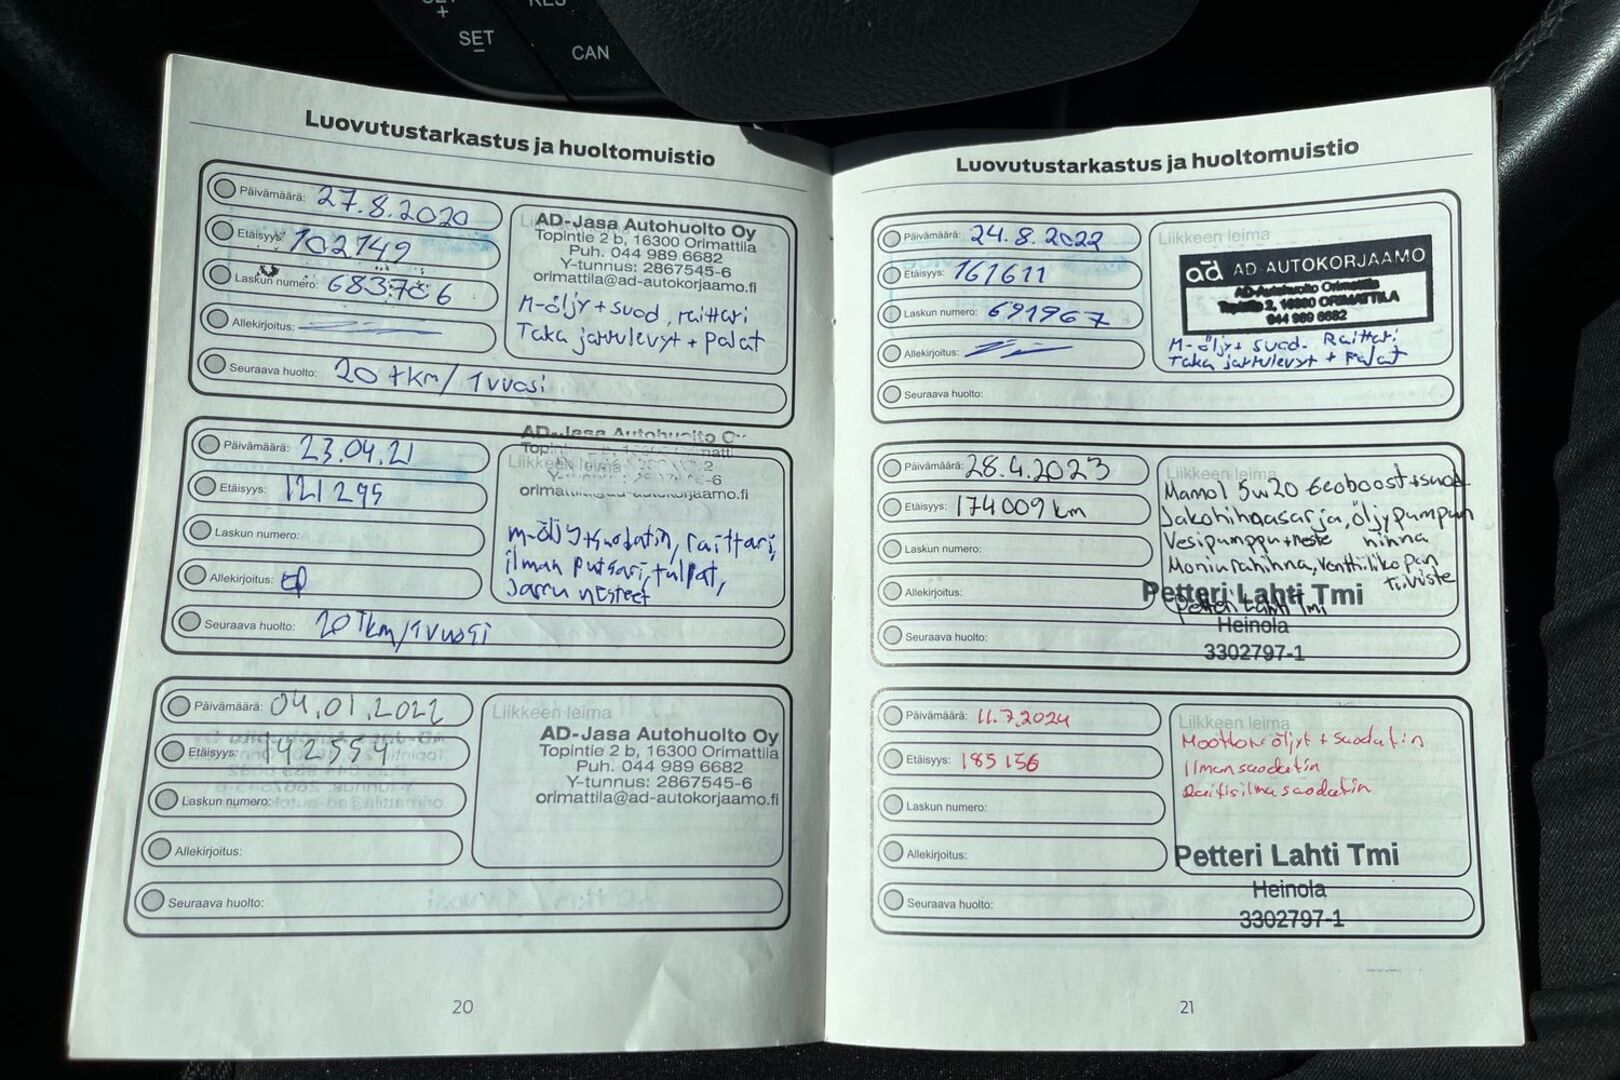 SET
+
RES
SET
–
CAN
Luovutustarkastus ja huoltomuistio
Päivämäärä: 27.8.2020
Etäisyys: 102149
Laskun numero: 683706
Allekirjoitus:
Seuraava huolto: 20 tkm/1vuosi
AD-Jasa Autohuolto Oy
Topintie 2 b, 16300 Orimattila
Puh. 044 989 6682
Y-tunnus: 2867545-6
orimattila@ad-autokorjaamo.fi
M-öljy + suod, raittari
Taka jarrulevyt + palat
Päivämäärä: 23.04.21
Etäisyys: 121295
Laskun numero:
Allekirjoitus:
Seuraava huolto: 20Tkm/1vuosi
AD-Jasa Autohuolto Oy
Liikkeen leima
m-öljy+suodatin, raittari,
ilman putsari, tulpat,
Jarru nesteet
Päivämäärä: 04.01.2022
Etäisyys: 142554
Laskun numero:
Allekirjoitus:
Seuraava huolto:
Liikkeen leima
AD-Jasa Autohuolto Oy
Topintie 2 b, 16300 Orimattila
Puh. 044 989 6682
Y-tunnus: 2867545-6
orimattila@ad-autokorjaamo.fi
20
Luovutustarkastus ja huoltomuistio
Päivämäärä: 24.8.2022
Etäisyys: 161611
Laskun numero: 691967
Allekirjoitus:
Seuraava huolto:
Liikkeen leima
ad AD-AUTOKORJAAMO
AD-Autohuolto Orimattila
Topintie 2, 16300 ORIMATTILA
044 989 6682
M-öljy+ suod. Raittari
Taka jarrulevyt + palat
Päivämäärä: 28.4.2023
Etäisyys: 174009 km
Laskun numero:
Allekirjoitus:
Seuraava huolto:
Liikkeen leima
Mamol 5w20 Ecoboost+suod
Jakohihnasarja, öljypumpun
Vesipumppu+neste hihna
Moniurahihna, Venttiilikopan
tiiviste
Petteri Lahti Tmi
Petteri Lahti Tmi
Heinola
3302797-1
Päivämäärä: 11.7.2024
Etäisyys: 185156
Laskun numero:
Allekirjoitus:
Seuraava huolto:
Liikkeen leima
Moottoriöljyt + suodatin
Ilmansuodatin
Raitisilmasuodatin
Petteri Lahti Tmi
Heinola
3302797-1
21